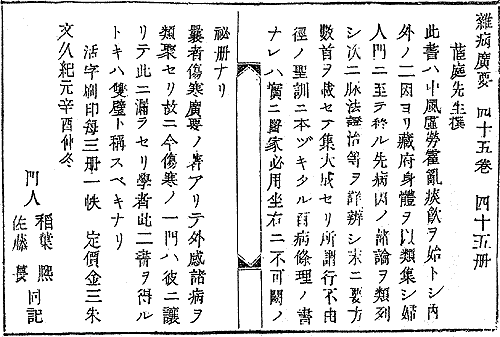 雜病廣要　四十五卷　四十五册
茝庭先生撰
此書ハ中風虛勞霍亂痰飮ヲ始トシ內
外ノ二因ヨリ藏府身體ヲ以類集シ婦
人門ニ至テ終ル先病因ノ諸論ヲ類列
シ次ニ脉法證治等ヲ詳辨シ末ニ要方
數首ヲ載セテ集大成セリ所謂行不由
徑ノ聖訓ニ本ヅキタル百病條理ノ書
ナレハ實ニ醫家必用坐右ニ不可闕ノ
祕册ナリ
曩者傷寒廣要ノ著アリテ外感諸病ヲ
類聚セリ故ニ今傷寒ノ一門ハ彼ニ讓
リテ此ニ漏ラセリ學者此二書ヲ得ル
トキハ雙璧ト稱スベキナリ
活字刷印每三册一帙　定價金三朱
文久紀元辛酉仲冬
門人　稻葉　熈
佐藤　萇　同記